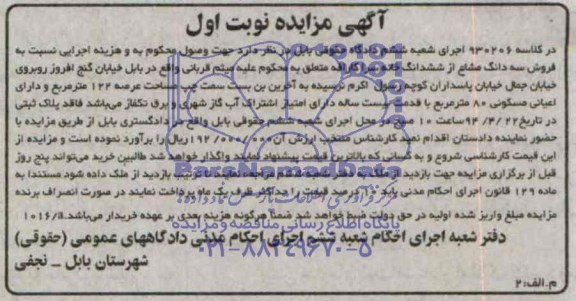 آگهی مزایده نوبت اول
در کلاسه ۹۳۰۲۰۶ اجرای شعبه ششم دادگاه حقوقی بابل در نظر دارد جهت وصول محکوم به و هزینه اجرایی نسبت به
فروش سه دانگ مشاع از ششدانگ خانه متعلق به محکوم علیه میثم قربانی واقع در بابل خیابان گنج افروز روبروی
خیابان جمال خیابان پاسداران کوچه رسول اکرم نرسیده به آخرین بن بست سمت چپ مساحت عرصه ۱۲۲ مترمربع و دارای
اعیانی مسکونی ۸۰ مترمربع با قدمت بیست ساله دارای امتیاز اشتراک آب گاز شهری و برق تکفاز می‌باشد فاقد پلاک ثبتی
در تاریخ ۹۴/۴/۲۲ ساعت ۱۰ صبح در محل اجرای شعبه ششم حقوقی بابل واقع در دادگستری بابل از طریق مزایده با
حضور نماینده دادستان اقدام نماید کارشناس منتخب ارزش آن ۱۹۲/۰۰۰/۰۰۰ ریال را برآورد نموده است و مزایده از
این قیمت کارشناسی شروع و به کسانی که بالاترین قیمت پیشنهاد نمایند واگذار خواهد شد طالبین خرید می‌توانند پنج روز
قبل از برگزاری مزایده جهت بازدید از ملک به دفتر شعبه ششم مراجعه نمایند تا ترتیب بازدید از ملک داده شود مستندا به
ماده ۱۲۹ قانون اجرای احکام مدنی باید ۱۰ درصد قیمت را حداکثر ظرف یک ماه پرداخت نمایند در صورت انصراف برنده
مزایده مبلغ واریز شده اولیه در حق دولت ضبط خواهد شد ضمنا هرگونه هزینه بعدی بر عهده خریدار می‌باشد.۱۰۱۶/۸
پایگاه اطلاع رسانی مناقصه و مزایده
دفتر شعبه اجرای احکام شعبه ششم اجرای احکام مدنی دادگاههای عمومی (حقوقی)
۰۲۱-۸۸۳۴۹۶۷۰-۵
شهرستان بابل - نجفی
م.الف:۲